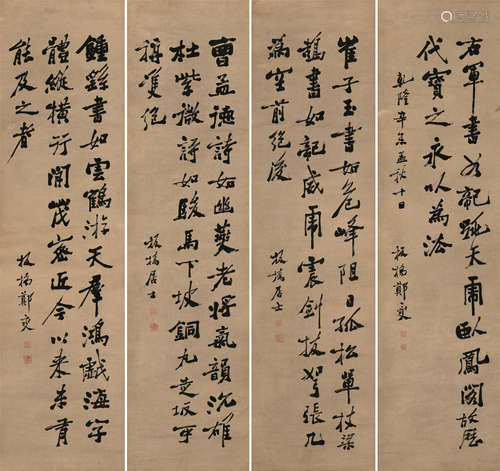 右軍書如龍跳天虎臥鳳閣故歷
代寶之永以為法
乾隆辛未孟秋十日 板橋鄭燮
崔子玉書如危峰阻日孤松單枝梁
鵠書如龍威虎震劍拔弩張
空前絕後
板橋居士
曹孟德詩如幽燕老將氣韻沉雄
杜紫微詩如駿馬下坡銅丸走坂可
稱雙絕
板橋居士
鍾繇書如雲鶴游天群鴻戲海字
體縱橫行間茂密近今以來未有
能及之者
板橋鄭燮